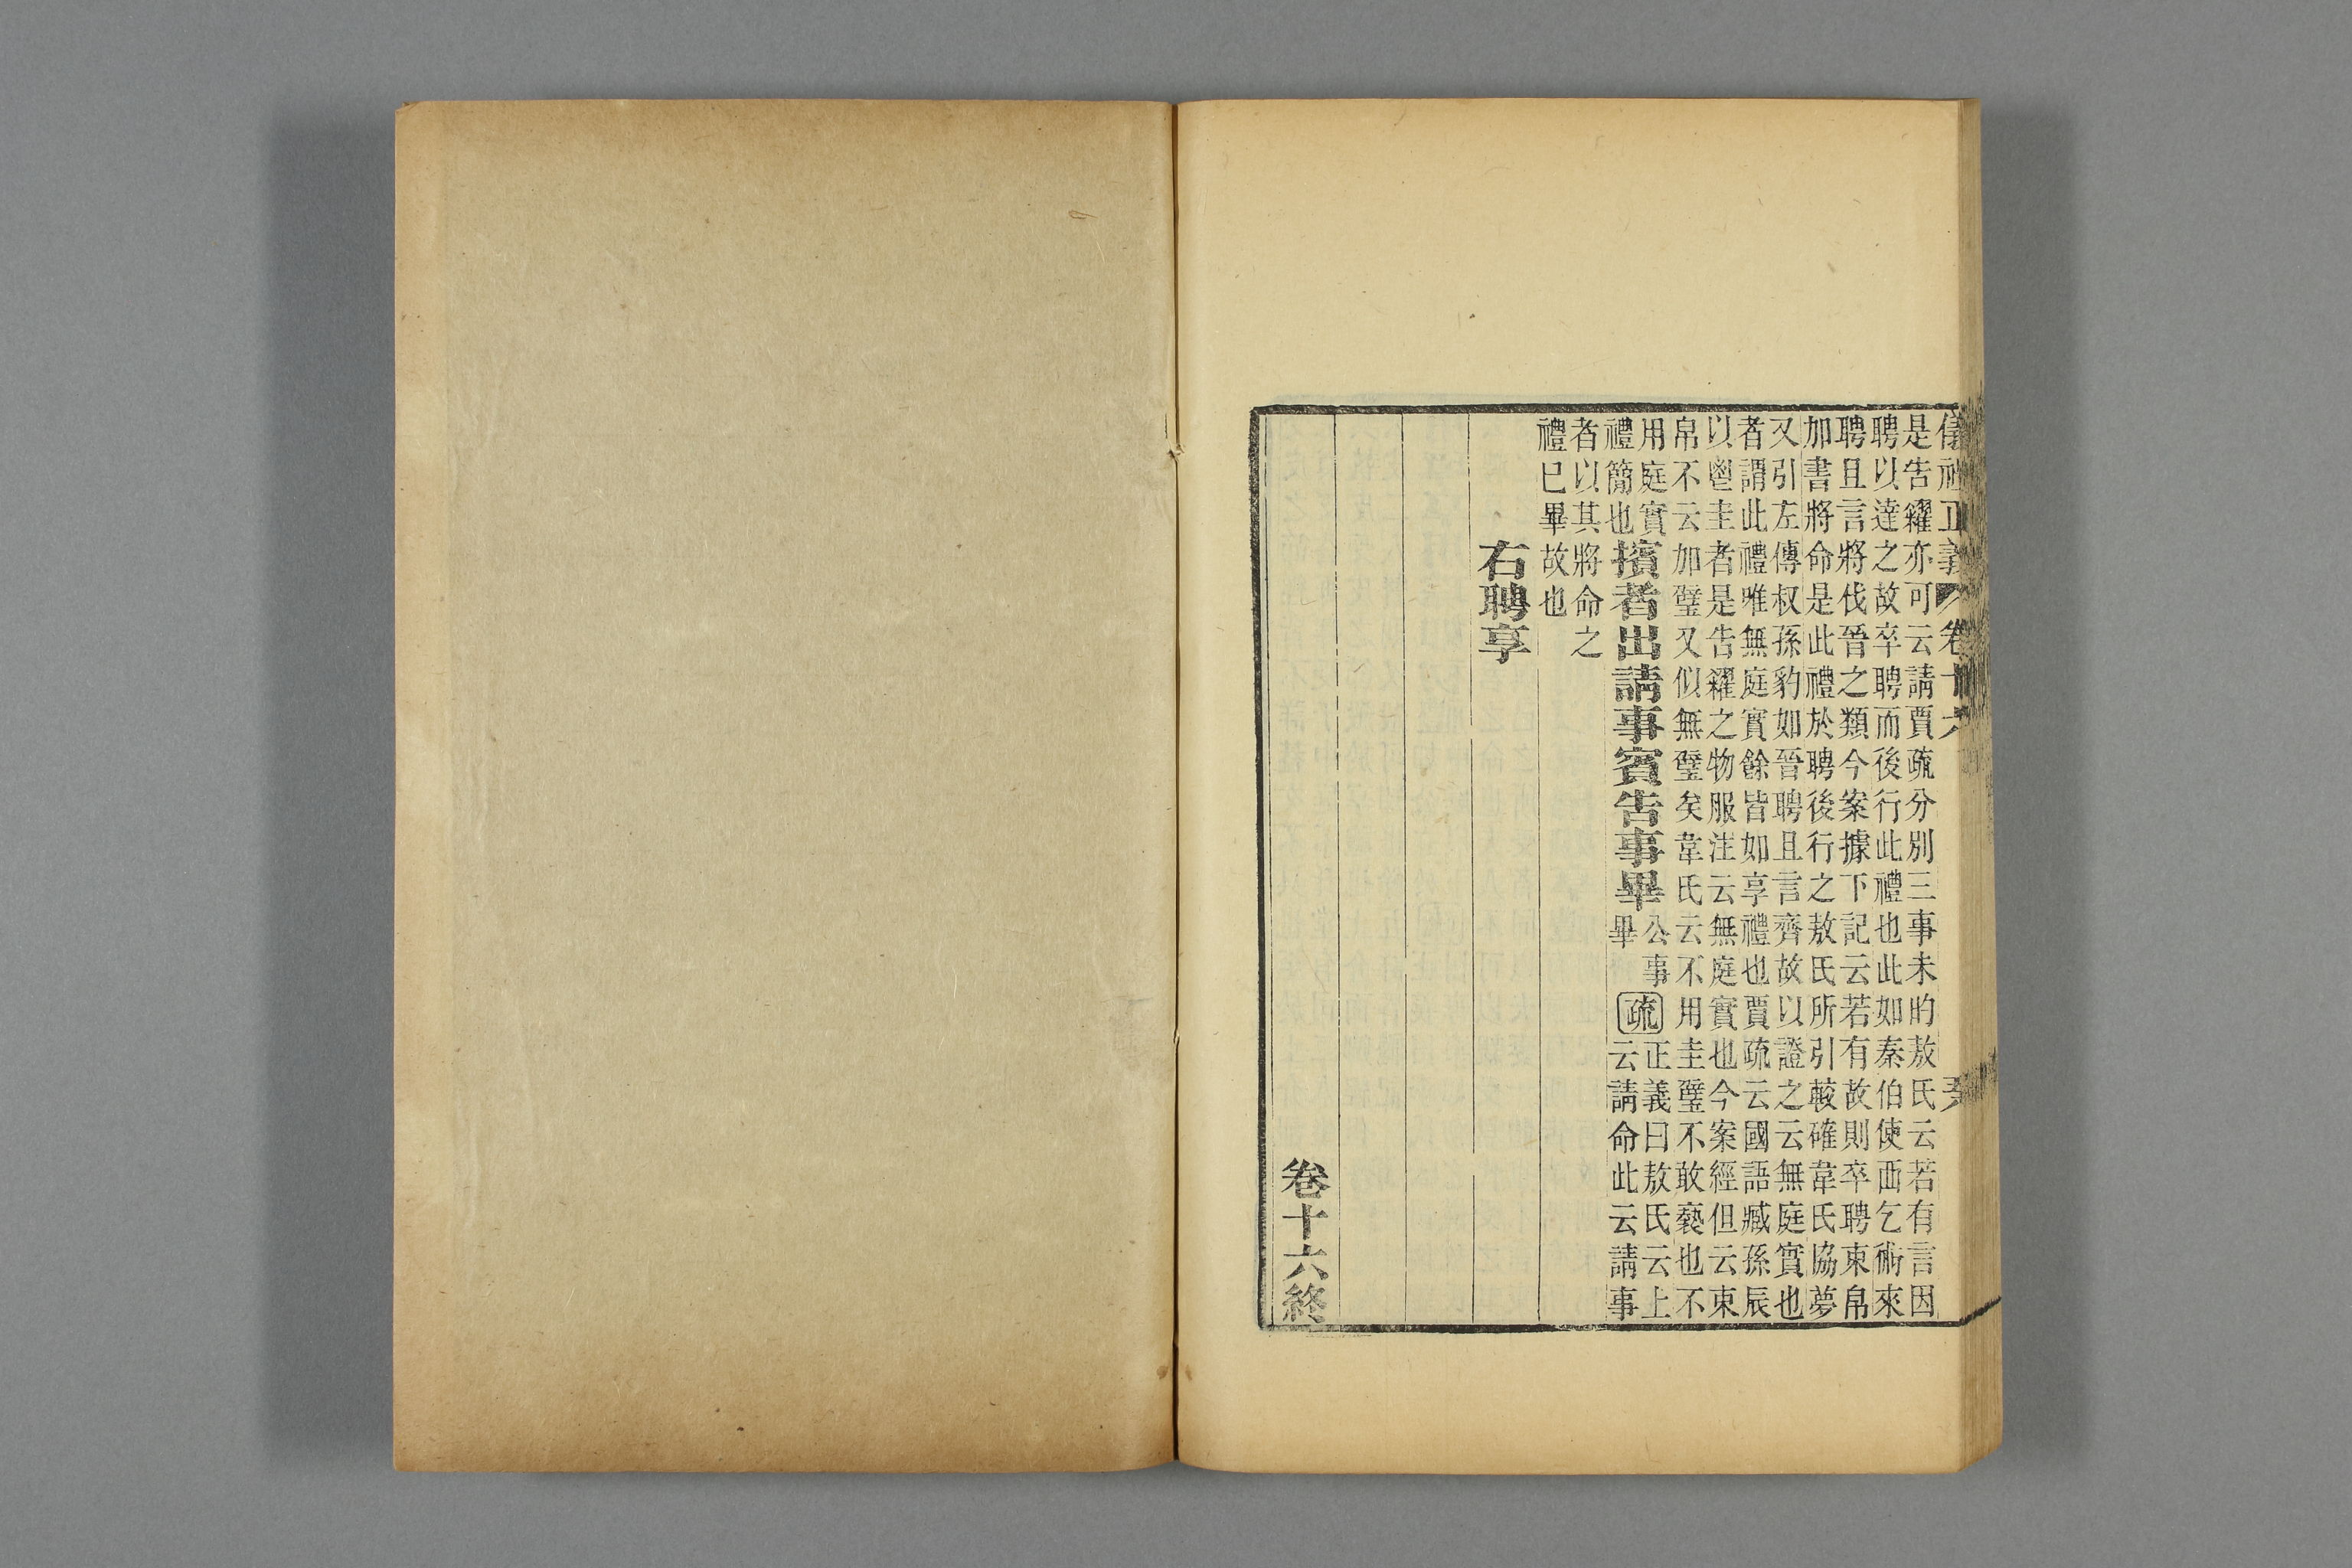 儀禮正義 卷十六
是告糴亦可云請賈疏分別三事未的敖氏云若有言因
聘以達之故卒聘而後行此禮也此如秦伯使西乞術來
聘且言將伐晉之類今案據下記云若有故則卒聘束帛
加書將命是此禮於聘後行之敖氏所引較確韋氏協夢
又引左傳叔孫豹如晉聘且言齊故以證之云無庭實也
者謂此禮唯無庭實餘皆如享禮也賈疏云國語臧孫辰
以鬯圭者是告糴之物服注云無庭實也今案經但云束
帛不云加璧又似無璧矣韋氏云不用圭璧不敢褻也不
用庭實
禮簡也
擯者出請事賓告事畢
公事
畢
疏
正義曰敖氏云上
云請命此云請事
者以其將命之
禮已畢故也
右聘享
卷十六終